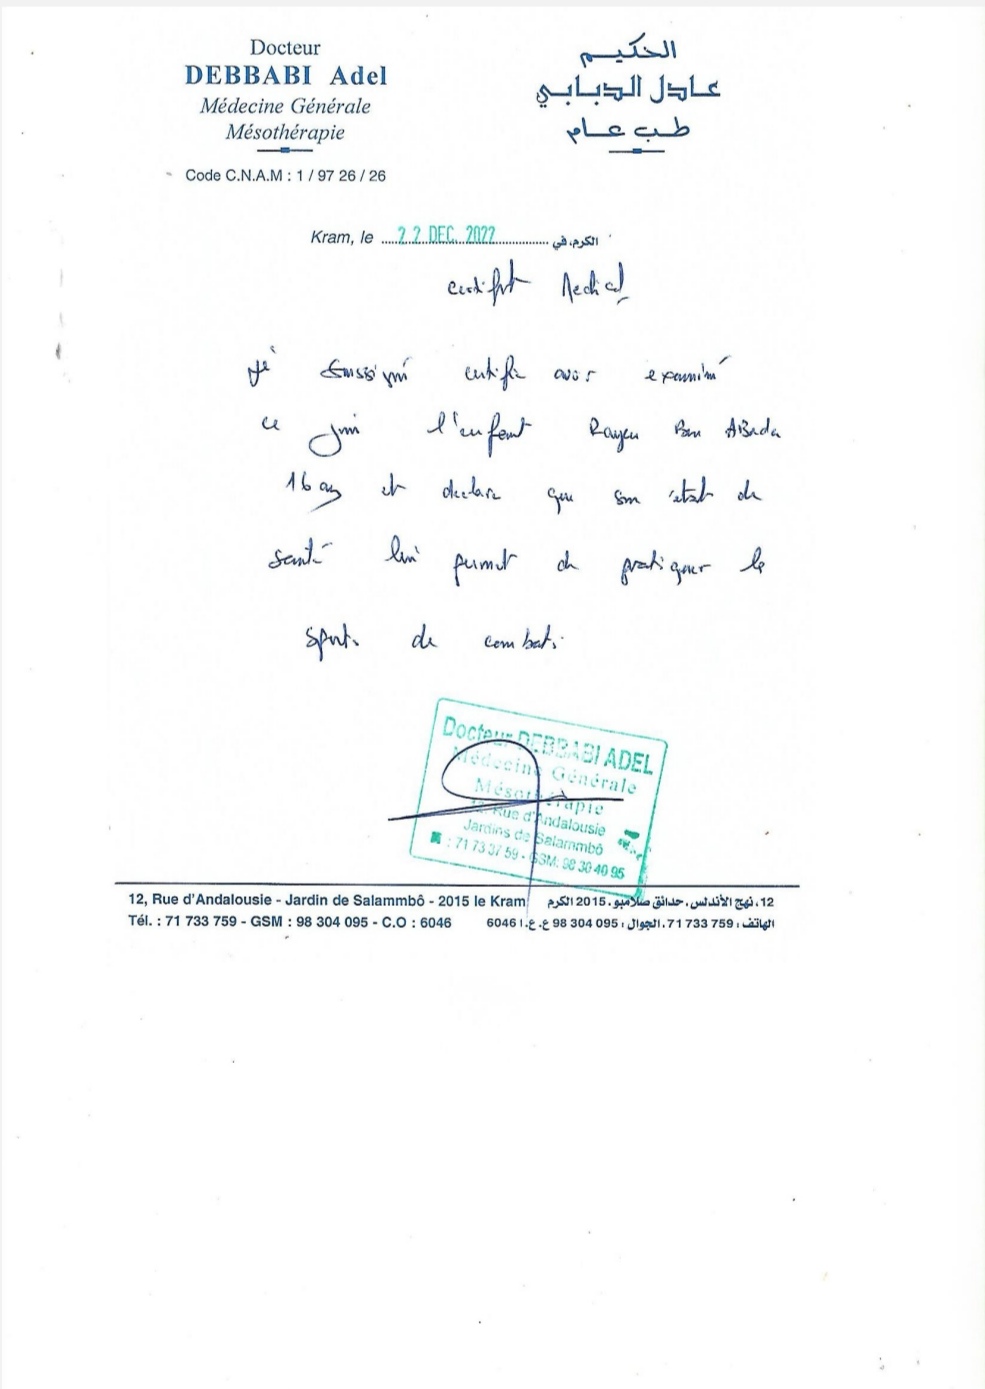 Docteur
DEBBABI Adel
Médecine Générale
Mésothérapie
Code C.N.A.M : 1 / 97 26 / 26
الحكيم
عادل الدبابي
طب عام
Kram, le 22 DEC. 2022 الكرم، في
Certificat Medical
Je soussigné certifie avoir examiné
ce jour l'enfant Rayen Ben Abada
16 ans et declare que son état de
santé lui permet de pratiquer le
sport de combat.
Docteur DEBBABI ADEL
Médecine Générale
Mésothérapie
12, Rue d'Andalousie
Jardins de Salammbô
: 71 73 37 59 - GSM: 98 30 40 95
12, Rue d'Andalousie - Jardin de Salammbô - 2015 le Kram
Tél. : 71 733 759 - GSM : 98 304 095 - C.O : 6046
12، نهج الأندلس، حدائق صلامبو، 2015 الكرم
الهاتف : 71 733 759، الجوال : 98 304 095 ع.ع. : 6046